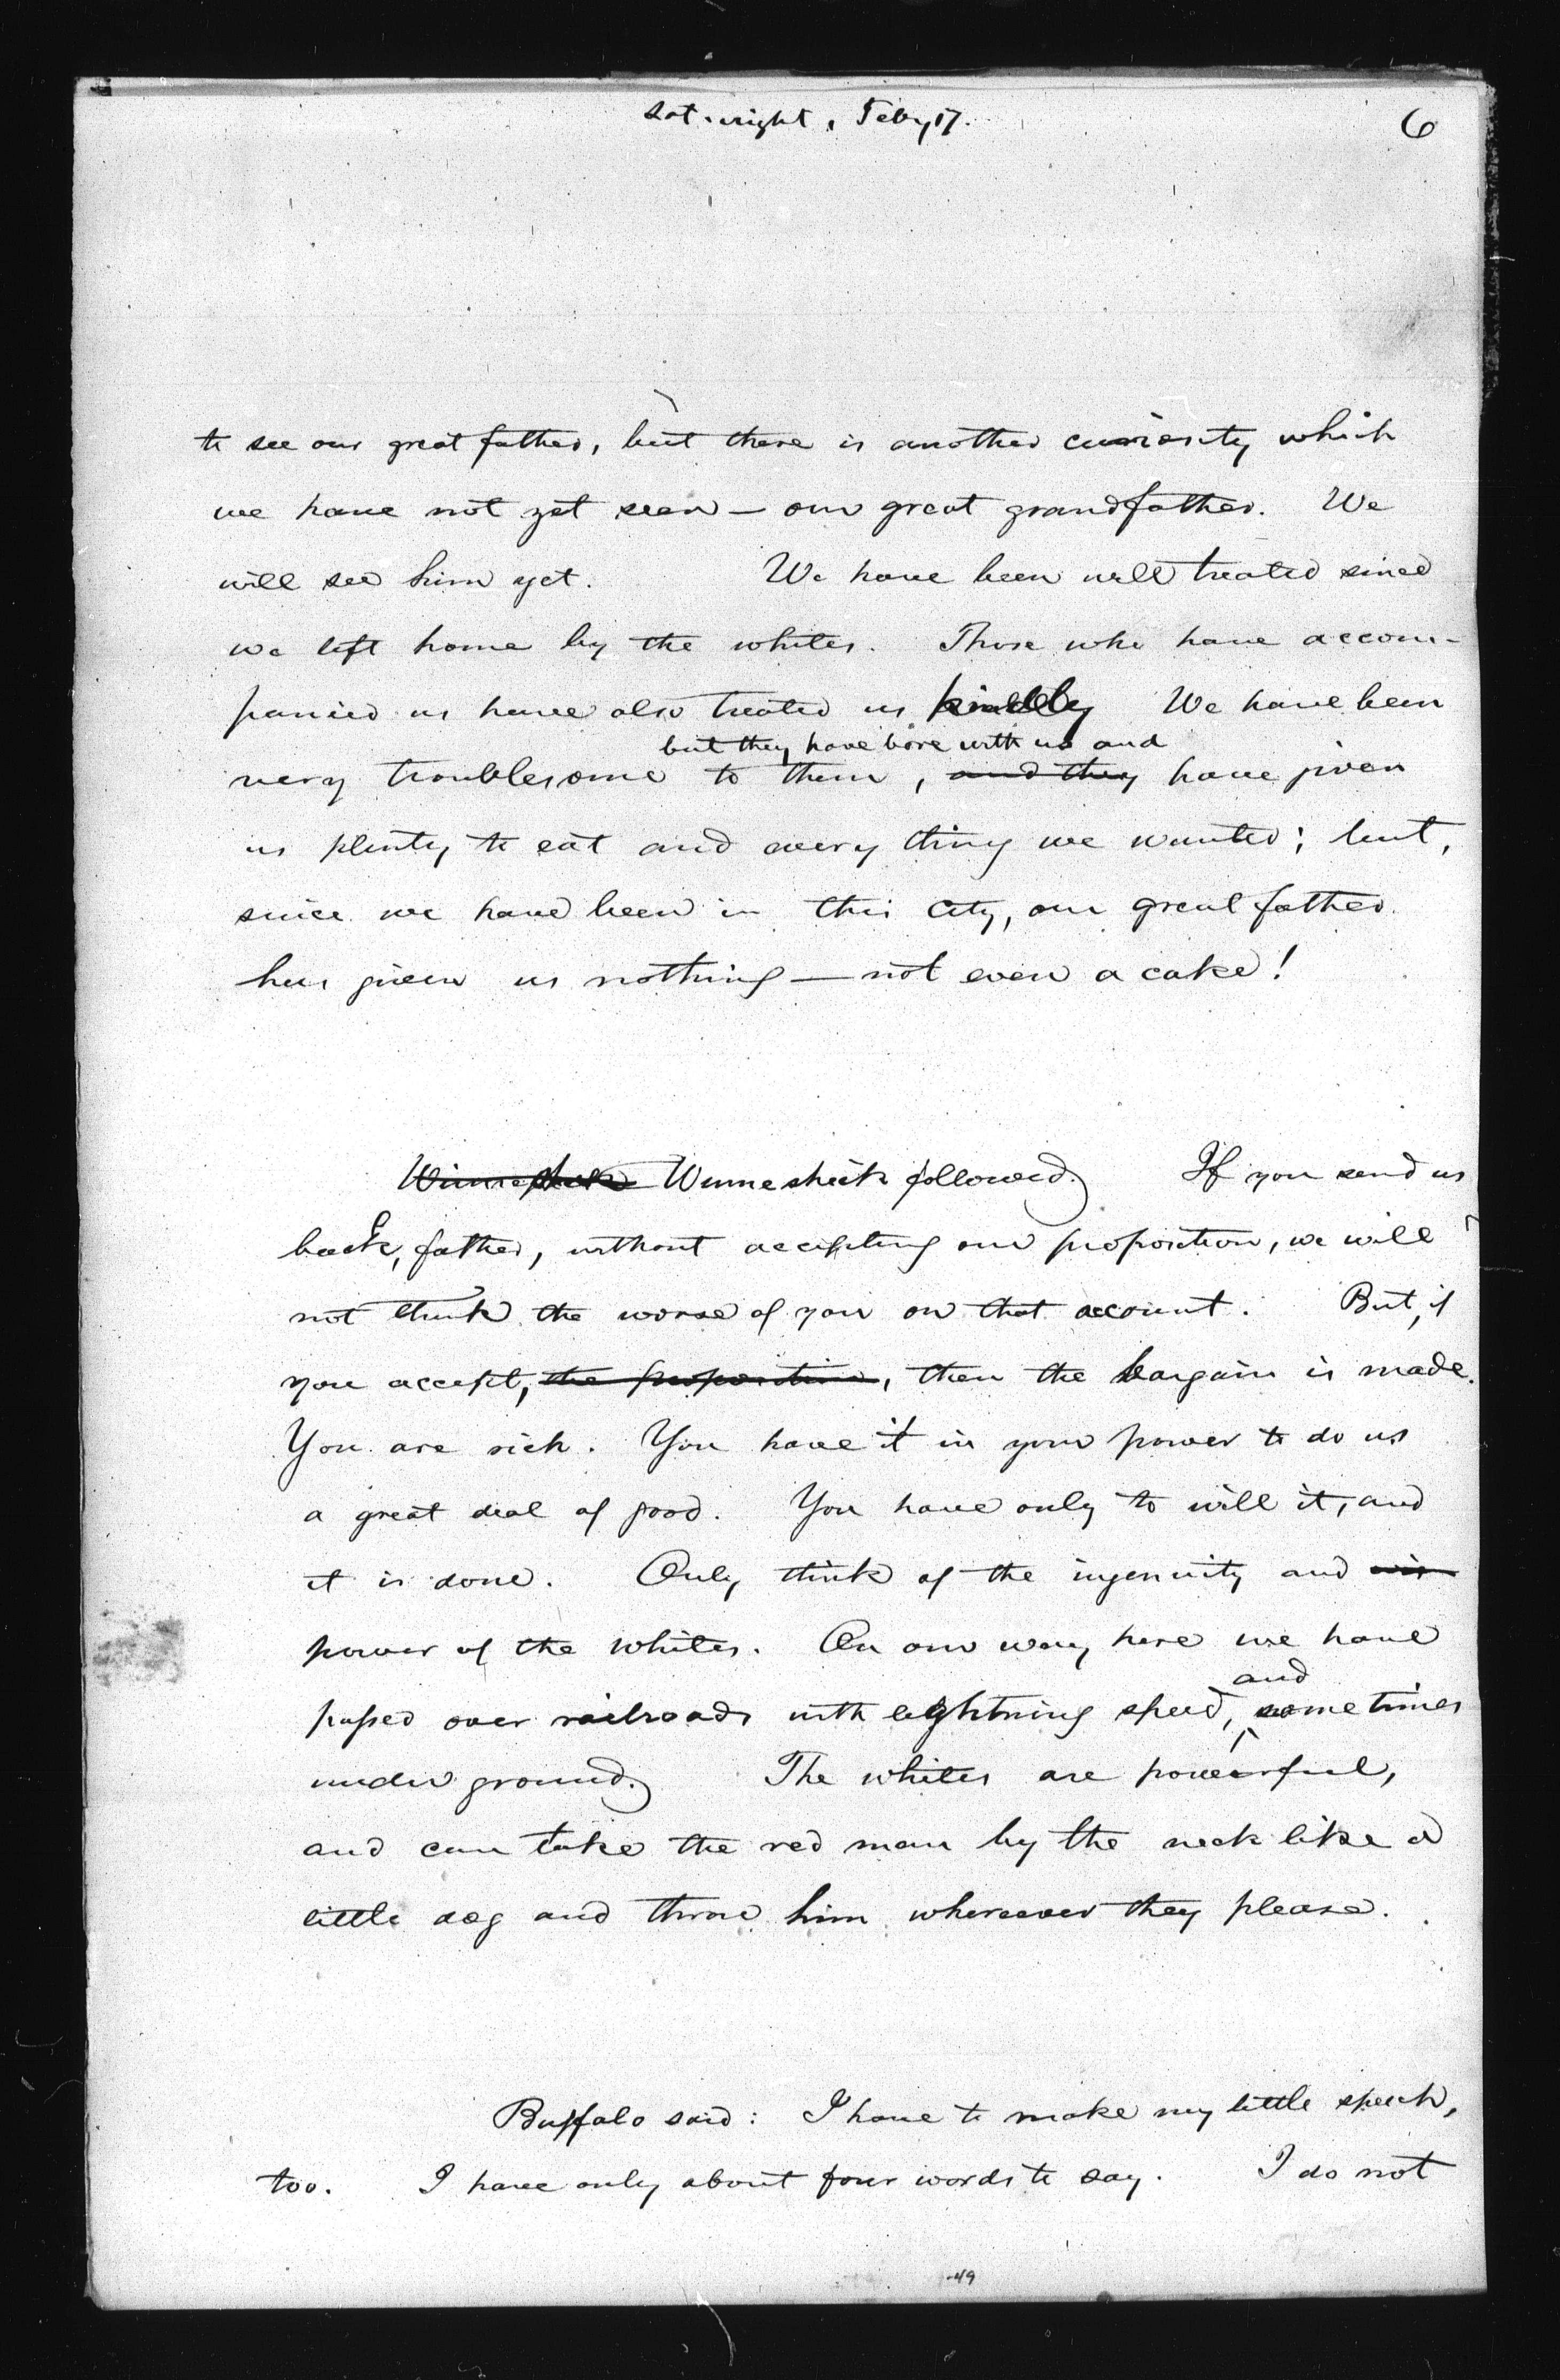 Sat. night, Feby 17.
6
to see our great father, but there is another curiosity which
we have not yet seen — our great grandfather. We
will see him yet. We have been well treated since
we left home by the whites. Those who have accom-
panied us have also treated us kindly We have been
but they have bore with us and
very troublesome to them, and they have given
us plenty to eat and every thing we wanted; but,
since we have been in this city, our great father
has given us nothing — not even a cake!
Winnesheik Winnesheik followed.) If you send us
back, father, without accepting our proposition, we will
not think the worse of you on that account. But, if
you accept, the proposition, then the bargain is made.
You are rich. You have it in your power to do us
a great deal of good. You have only to will it, and
it is done. Only think of the ingenuity and
power of the whites. On our way here we have
and
passed over railroads with lightning speed, sometimes
under ground.) The whites are powerful,
and can take the red man by the neck like a
little dog and throw him wherever they please.
Buffalo said: I have to make my little speech,
too. I have only about four words to say. I do not
49